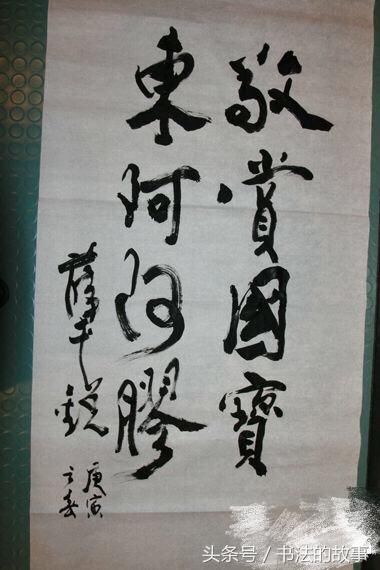 敬賞國寶
東阿阿膠
薛中鋭
庚寅
之春
头条号 / 书法的故事